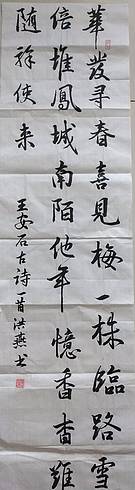 華發寻春喜見梅一株臨路雪
倍堆鳳城南陌他年憶香杳難
随驛使来
王安石古詩一首洪燕书